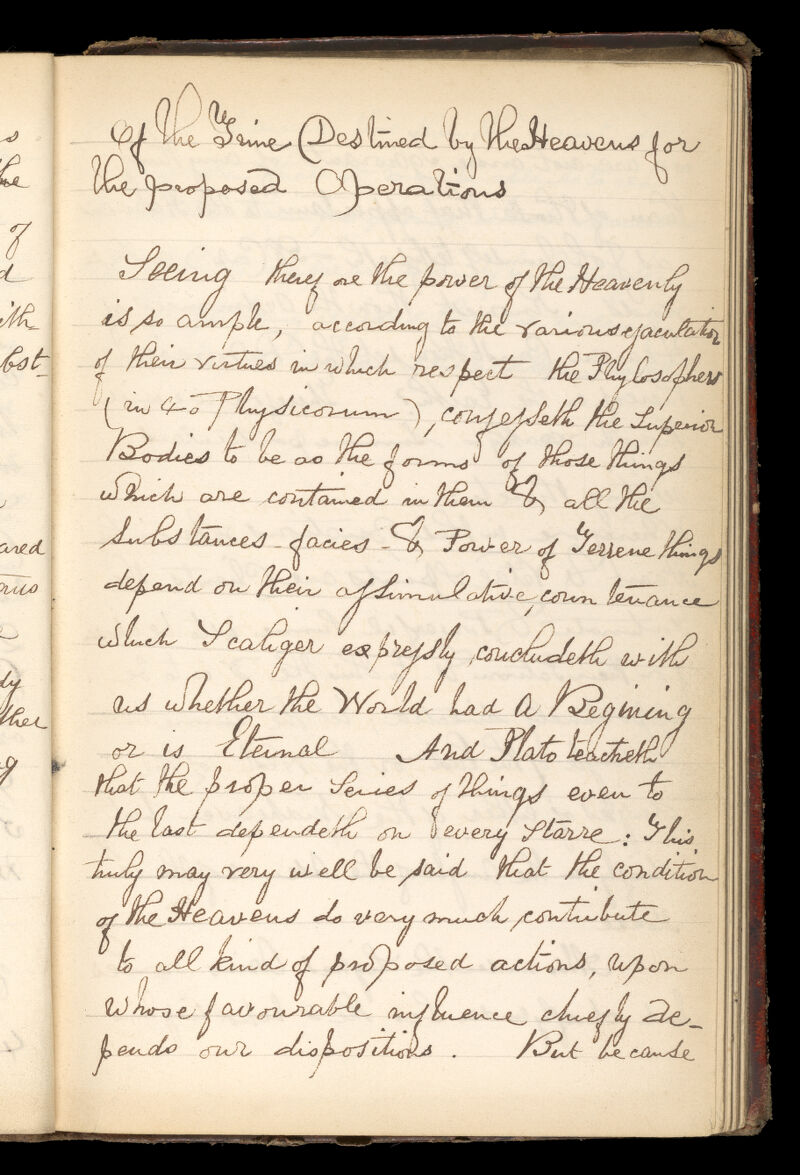 Of the Time Destined by the Heavens for
the proposed Operations
Seeing therefore the power of the Heavenly
is so ample, according to the various ejaculation
of their virtues in which respect the Phylosophers
(in 4 o Physicorum), confesseth the Superior
Bodies to be as the forms of those things
which are contained in them & all the
substances - facies - & Power of Terrene things
depend on their assimulative, countenance
which Scaliger expressly concludeth with
us whether the World had A Begining
or is Eternal And Plato teacheth
that the proper Series of things even to
the last dependeth on every Starre: This
truly may very well be said that the condition
of the Heavens do very much contribute
to all kind of proposed actions, upon
whose favourable influence chiefly de-
pends our dispositions. But because
s
the
of
d
ith-
bst-
ared
dy
ther
g